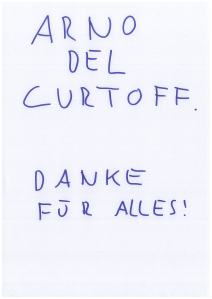 ARNO
DEL
CURTOFF.
DANKE
FÜR ALLES!